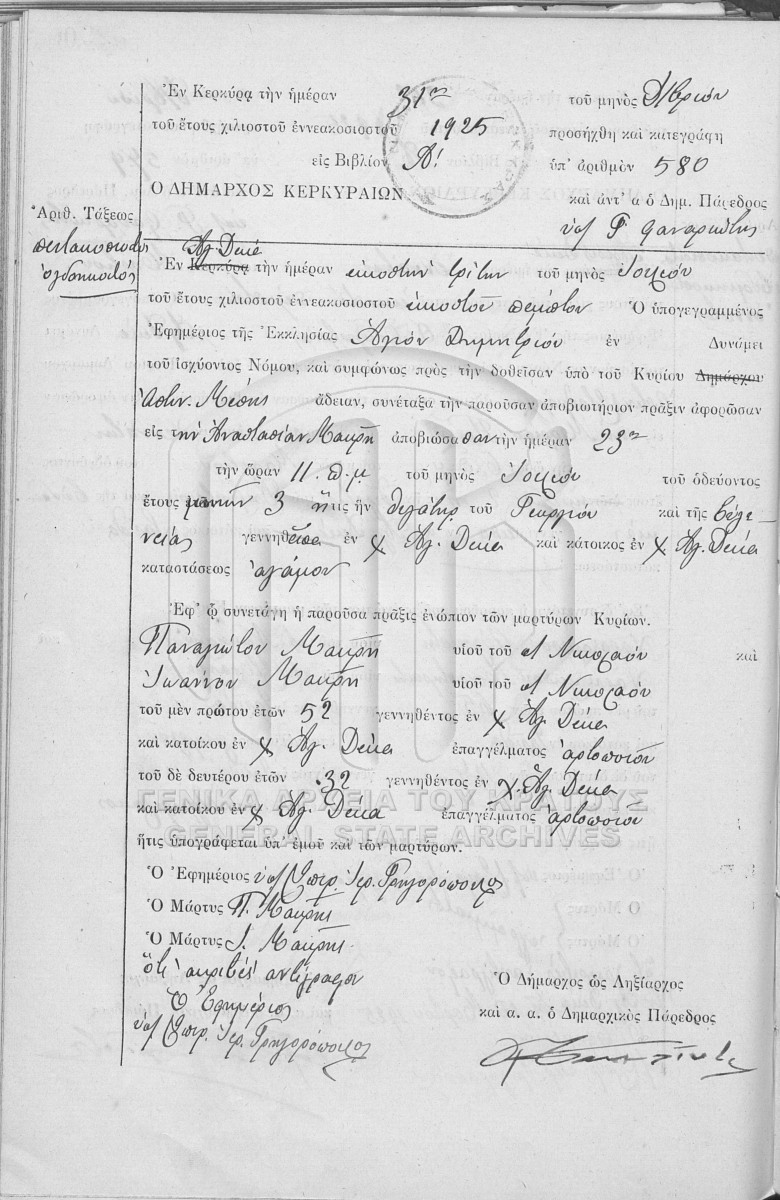 Ἐν Κερκύρᾳ τὴν ἡμέραν 31ην τοῦ μηνὸς
τοῦ ἔτους χιλιοστοῦ ἐννεακοσιοστοῦ 1925 προσήχθη καὶ κατεγράφη
εἰς Βιβλίον Α! ὑπ' ἀριθμὸν 580
Ο ΔΗΜΑΡΧΟΣ ΚΕΡΚΥΡΑΙΩΝ καὶ ἀντ' α ὁ Δημ. Πάρεδρος
Ἀριθ. Τάξεως
πεντακοσιοστὸς
ὀγδοηκοστός
Ἁγ. Δέκα
Ἐν Κερκύρᾳ τὴν ἡμέραν εἰκοστὴν τρίτην τοῦ μηνὸς Ἰουλίου
τοῦ ἔτους χιλιοστοῦ ἐννεακοσιοστοῦ εἰκοστοῦ πέμπτου Ὁ ὑπογεγραμμένος
Ἐφημέριος τῆς Ἐκκλησίας Ἁγίου Δημητρίου ἐν Δυνάμει
τοῦ ἰσχύοντος Νόμου, καὶ συμφώνως πρὸς τὴν δοθεῖσαν ὑπὸ τοῦ Κυρίου Δημάρχου
Ἀστυν. Μέσης ἄδειαν, συνέταξα τὴν παροῦσαν ἀποβιωτήριον πρᾶξιν ἀφορῶσαν
εἰς τὴν Ἀναστασίαν Μακρῆ ἀποβιώσασαν τὴν ἡμέραν 23ην
τὴν ὥραν 11 π.μ. τοῦ μηνὸς Ἰουλίου τοῦ ὁδεύοντος
ἔτους μηνῶν 3 ἥτις ἦν θυγάτηρ τοῦ Γεωργίου καὶ τῆς Εὐγε-
νείας γεννηθεῖσα ἐν χ Ἁγ. Δέκα καὶ κάτοικος ἐν χ. Ἁγ. Δέκα
καταστάσεως ἀγάμου
Ἐφ' ᾧ συνετάγη ἡ παροῦσα πρᾶξις ἐνώπιον τῶν μαρτύρων Κυρίων.
Παναγιώτου Μακρῆ υἱοῦ τοῦ Νικολάου καὶ
Ἰωάννου Μακρῆ υἱοῦ τοῦ Νικολάου
τοῦ μὲν πρώτου ἐτῶν 52 γεννηθέντος ἐν χ Ἁγ. Δέκα
καὶ κατοίκου ἐν χ Ἁγ. Δέκα ἐπαγγέλματος ἀρτοποιοῦ
τοῦ δὲ δευτέρου ἐτῶν 32 γεννηθέντος ἐν χ. Ἁγ. Δέκα
ΓΕΝΙΚΑ ΑΡΧΕΙΑ ΤΟΥ ΚΡΑΤΟΥΣ
καὶ κατοίκου ἐν χ Ἁγ. Δέκα ἐπαγγέλματος ἀρτοποιοῦ
GENERAL STATE ARCHIVES
ἥτις ὑπογράφεται ὑπ' ἐμοῦ καὶ τῶν μαρτύρων.
Ὁ Ἐφημέριος Σπυρ. Ἱερ. Γρηγορόπουλος
Ὁ Μάρτυς Π. Μακρῆς
Ὁ Μάρτυς Ι. Μακρῆς
Ὅτι ἀκριβὲς ἀντίγραφον
Ὁ Ἐφημέριος
Σπυρ. Ἱερ. Γρηγορόπουλος
Ὁ Δήμαρχος ὡς Ληξίαρχος
καὶ α. α. ὁ Δημαρχικὸς Πάρεδρος